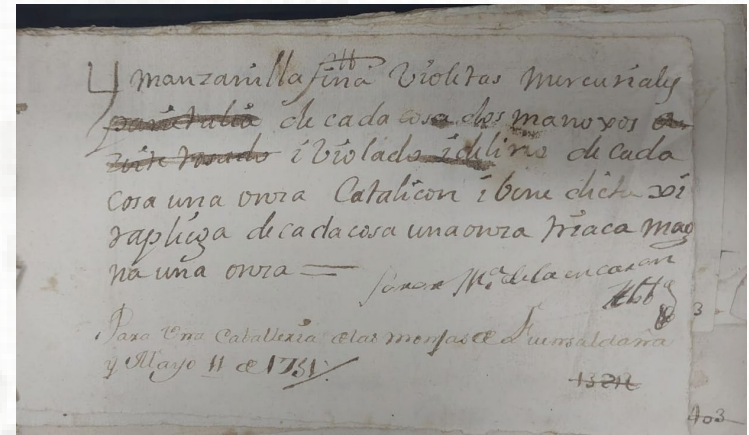 y manzanilla fina Violetas Mercuriales
parietaria de cada cosa dos manoxos
rosado i Violado i de lirio de cada
cosa una onza Catalicon i bene dicta xi
rapliega de cada cosa una onza triaca mag
na una onza =
Mª de la encarnon
3
Para Una Caballeria de las monjas de Fuensaldaña
y Mayo 11 de 1751
403